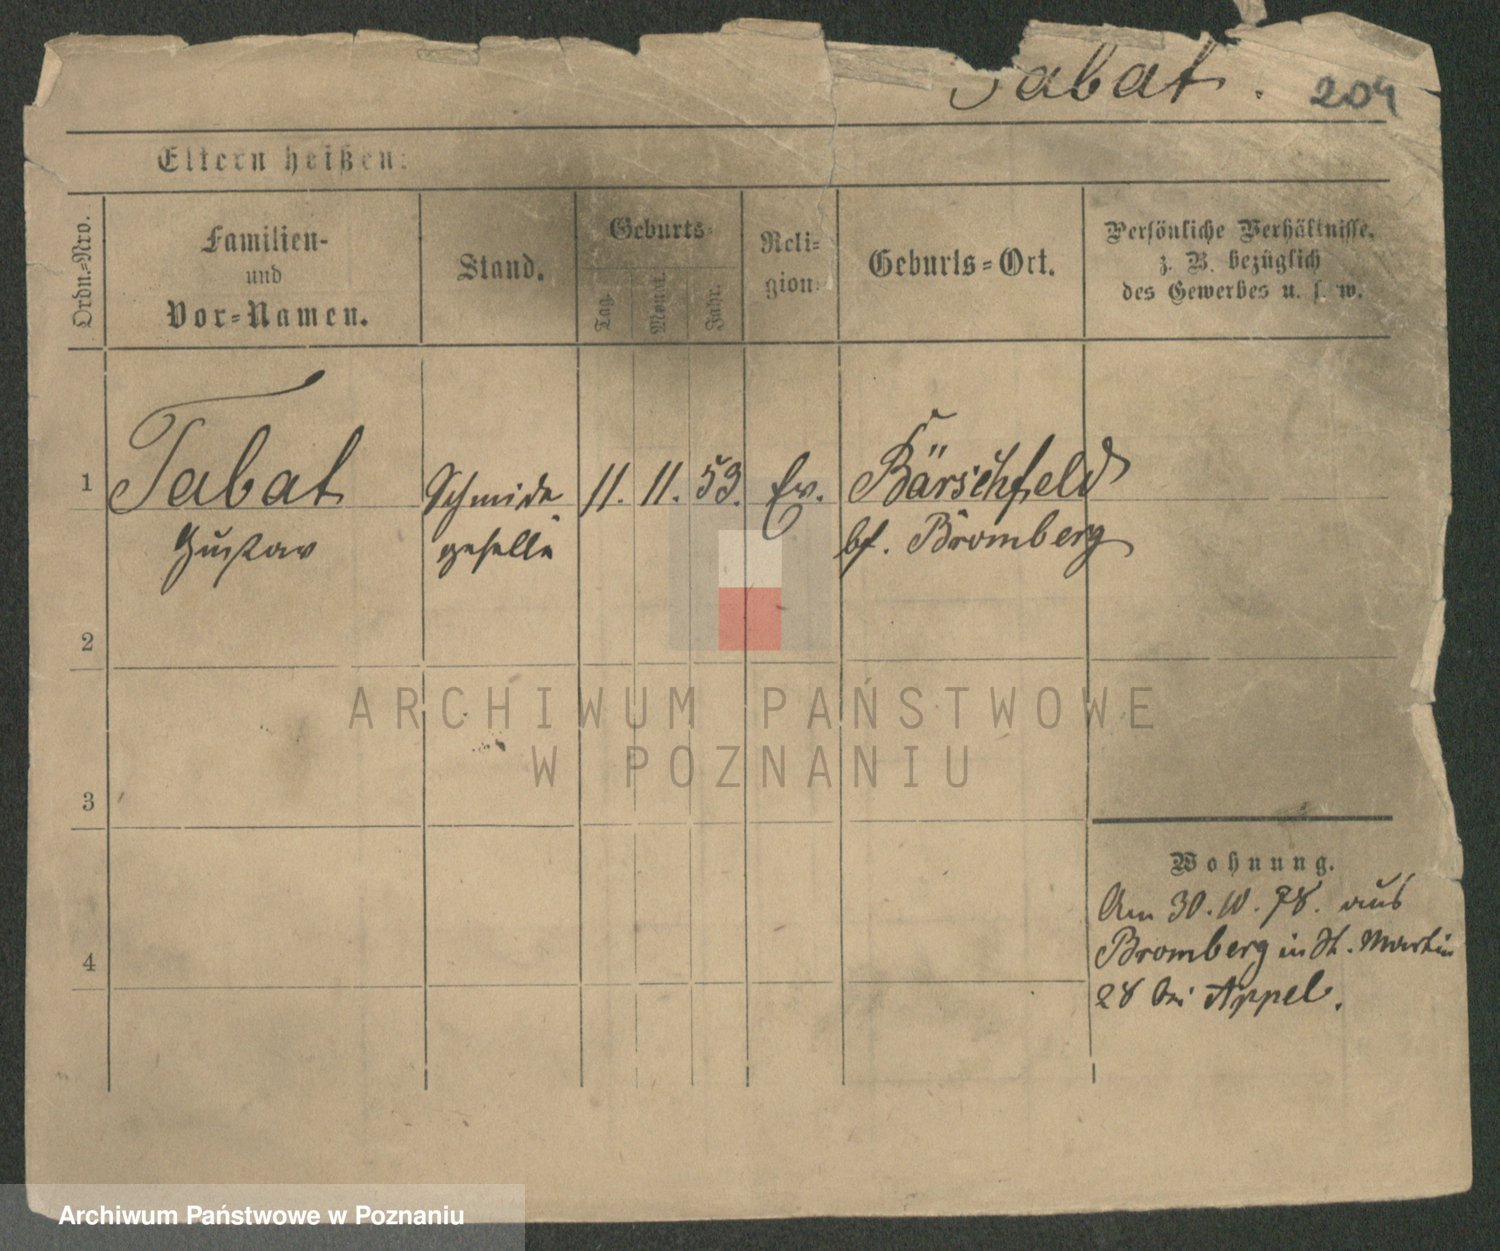 Tabat. 204
Eltern heißen:
Ordn.-Nro.
Familien-
und
Vor-Namen.
Stand.
Geburts-
Tag.
Monat.
Jahr.
Reli-
gion.
Geburts-Ort.
Persönliche Verhältnisse,
z. B. bezüglich
des Gewerbes u. s. w.
1 Tabat Schmide 11. 11. 53. Ev. Bärschfeld
Gustav geselle bf. Bromberg
2
3
4
Wohnung.
Am 30. 10. 78. aus
Bromberg in St. Martin
28 bei Appel.
ARCHIWUM PAŃSTWOWE
W POZNANIU
Archiwum Państwowe w Poznaniu